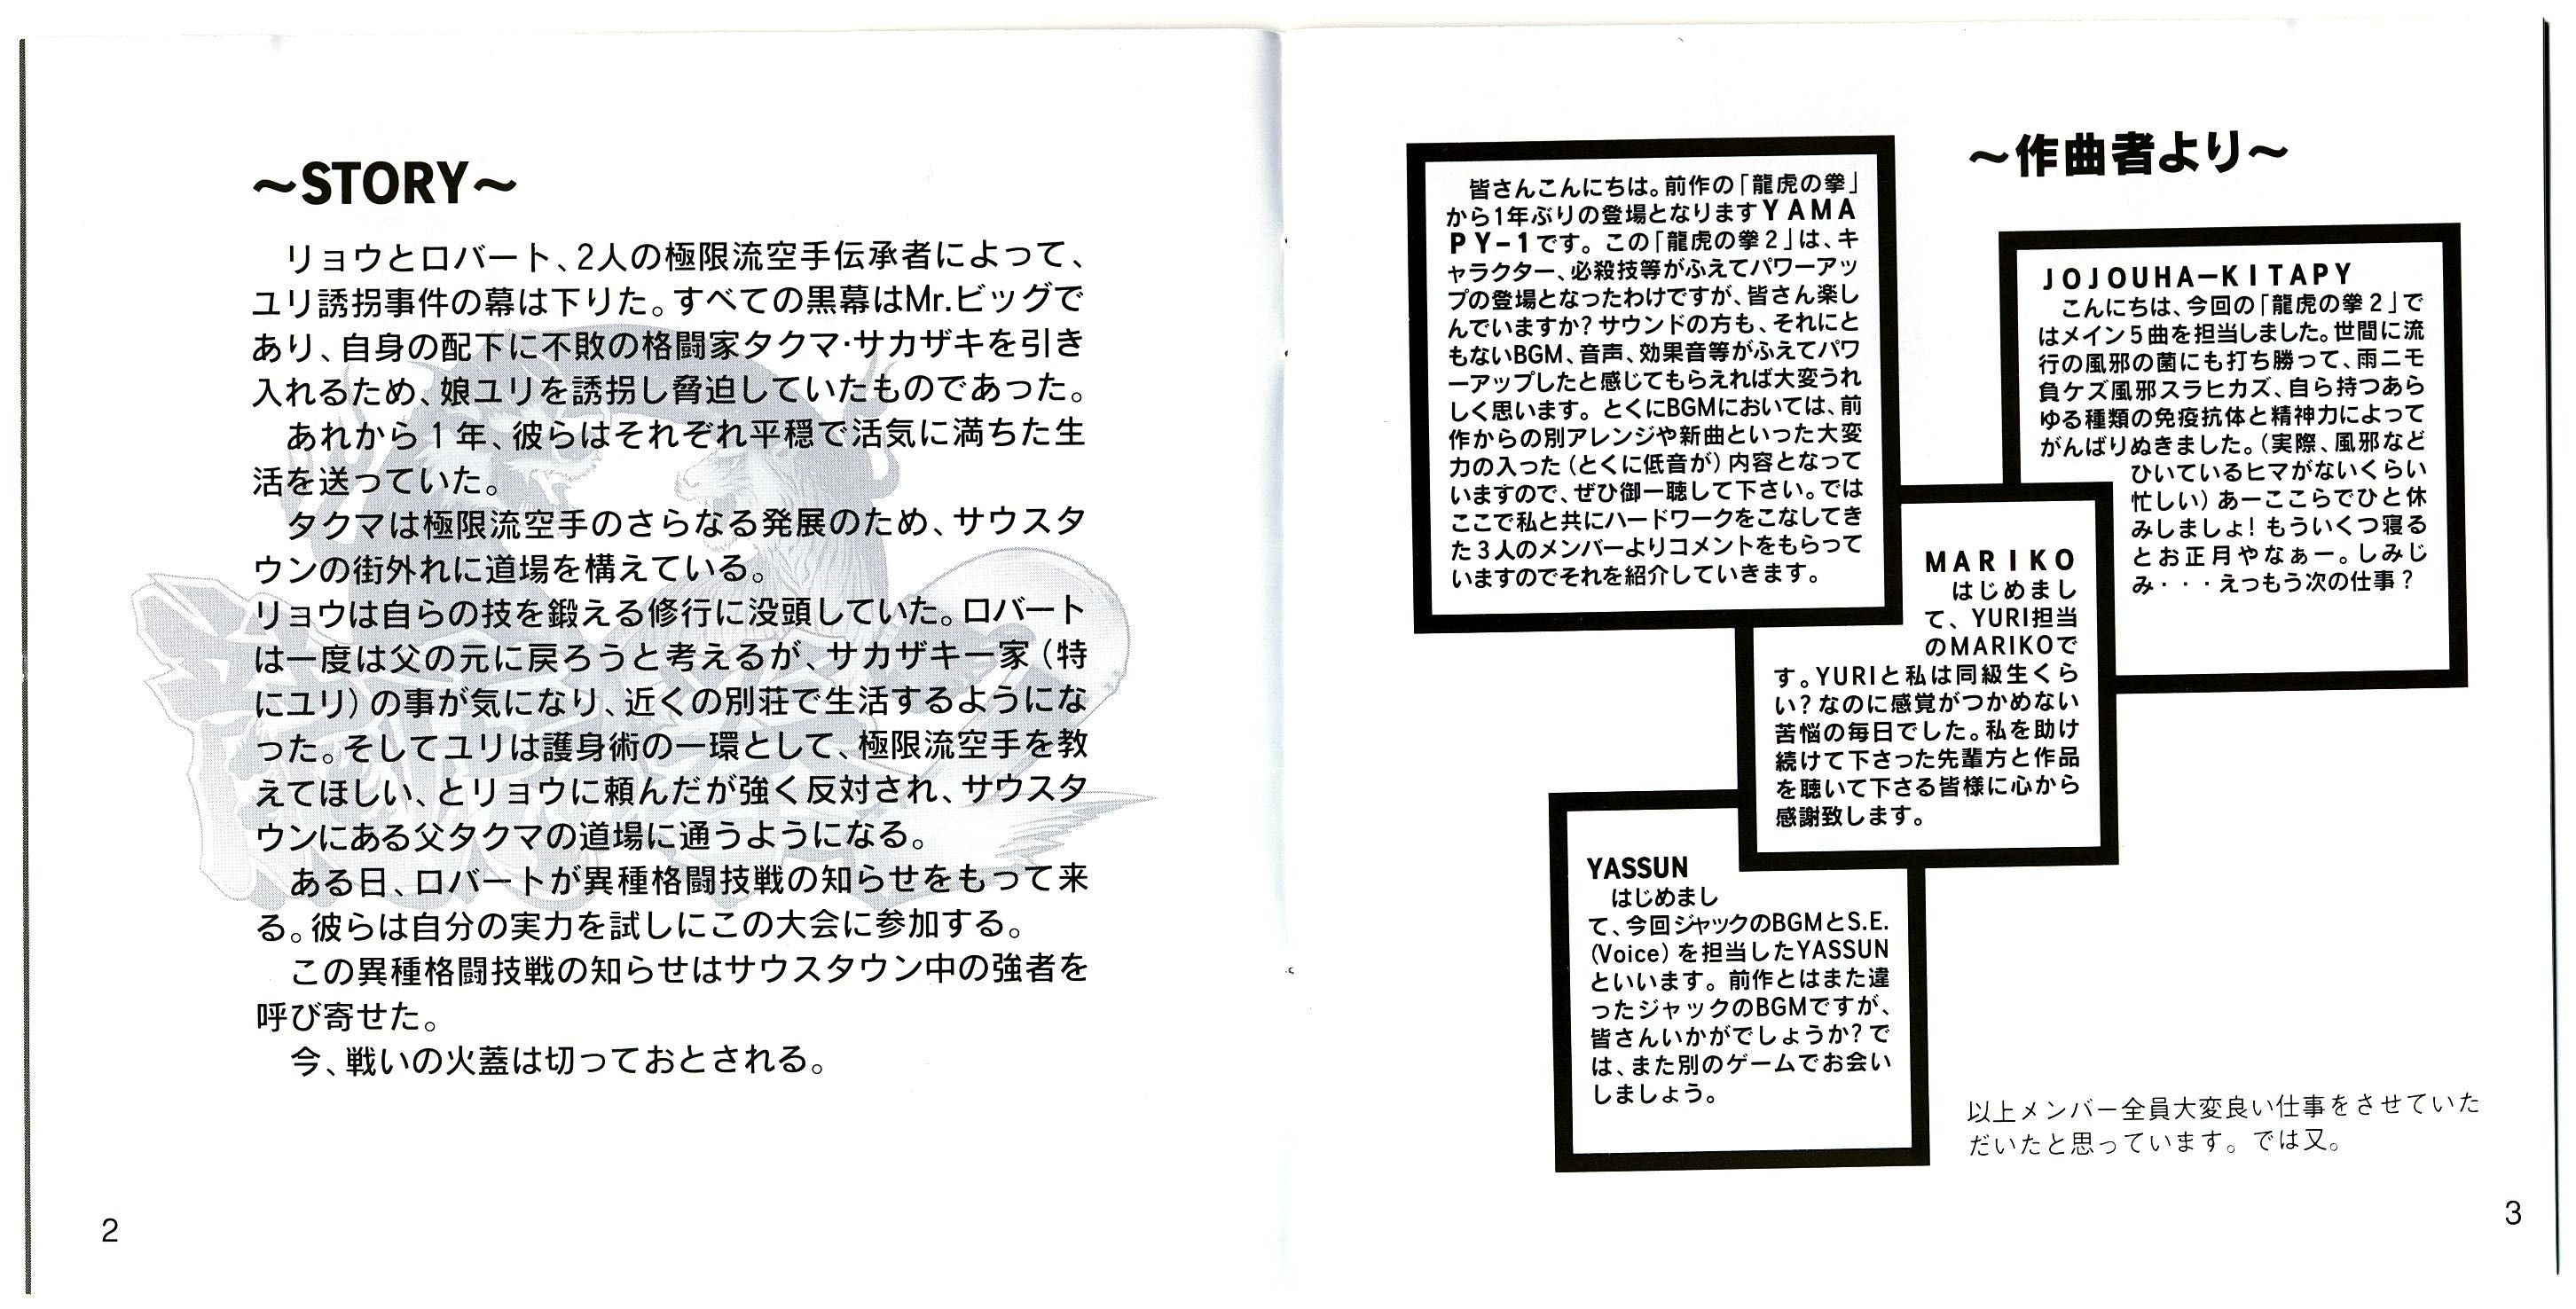 ～STORY～
リョウとロバート、2人の極限流空手伝承者によって、
ユリ誘拐事件の幕は下りた。すべての黒幕はMr.ビッグで
あり、自身の配下に不敗の格闘家タクマ・サカザキを引き
入れるため、娘ユリを誘拐し脅迫していたものであった。
あれから1年、彼らはそれぞれ平穏で活気に満ちた生
活を送っていた。
タクマは極限流空手のさらなる発展のため、サウスタ
ウンの街外れに道場を構えている。
リョウは自らの技を鍛える修行に没頭していた。ロバート
は一度は父の元に戻ろうと考えるが、サカザキ一家（特
にユリ）の事が気になり、近くの別荘で生活するようにな
った。そしてユリは護身術の一環として、極限流空手を教
えてほしい、とリョウに頼んだが強く反対され、サウスタ
ウンにある父タクマの道場に通うようになる。
ある日、ロバートが異種格闘技戦の知らせをもって来
る。彼らは自分の実力を試しにこの大会に参加する。
この異種格闘技戦の知らせはサウスタウン中の強者を
呼び寄せた。
今、戦いの火蓋は切っておとされる。
2
～作曲者より～
皆さんこんにちは。前作の「龍虎の拳」
から1年ぶりの登場となりますYAMA
PY-1です。この「龍虎の拳2」は、キ
ャラクター、必殺技等がふえてパワーアッ
プの登場となったわけですが、皆さん楽し
んでいますか？サウンドの方も、それにと
もないBGM、音声、効果音等がふえてパワ
ーアップしたと感じてもらえれば大変うれ
しく思います。とくにBGMにおいては、前
作からの別アレンジや新曲といった大変
力の入った（とくに低音が）内容となって
いますので、ぜひ御一聴して下さい。では
ここで私と共にハードワークをこなしてき
た3人のメンバーよりコメントをもらって
いますのでそれを紹介していきます。
JOJOUHA-KITAPY
こんにちは、今回の「龍虎の拳2」で
はメイン5曲を担当しました。世間に流
行の風邪の菌にも打ち勝って、雨ニモ
負ケズ風邪スラヒカズ、自ら持つあら
ゆる種類の免疫抗体と精神力によって
がんばりぬきました。（実際、風邪など
ひいているヒマがないくらい
忙しい）あーここらでひと休
みしましょ！もういくつ寝る
とお正月やなぁー。しみじ
み・・・えっもう次の仕事？
MARIKO
はじめまし
て、YURI担当
のMARIKOで
す。YURIと私は同級生くら
い？なのに感覚がつかめない
苦悩の毎日でした。私を助け
続けて下さった先輩方と作品
を聴いて下さる皆様に心から
感謝致します。
YASSUN
はじめまし
て、今回ジャックのBGMとS.E.
(Voice）を担当したYASSUN
といいます。前作とはまた違
ったジャックのBGMですが、
皆さんいかがでしょうか？で
は、また別のゲームでお会い
しましょう。
以上メンバー全員大変良い仕事をさせていた
だいたと思っています。では又。
3